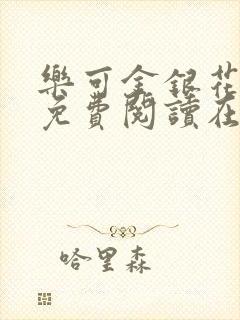 樂可金銀花
免費閱讀在
哈里森